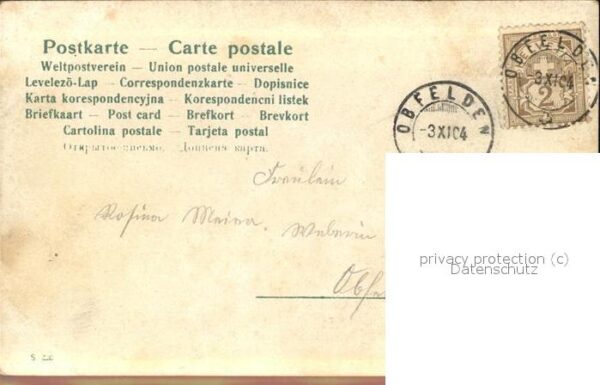 Postkarte — Carte postale
Weltpostverein — Union postale universelle
Levelező-Lap — Correspondenzkarte — Dopisnice
Karta korespondencyjna — Korespondencni listek
Briefkaart — Post card — Brefkort — Brevkort
Cartolina postale — Tarjeta postal
Открытое письмо. Дописна карта.
OBFELDEN
-3XI04
OBFELDEN
-3XI04
2
Fräulein
Rosina Meier, Weberin
Obf
privacy protection (c)
Datenschutz
S